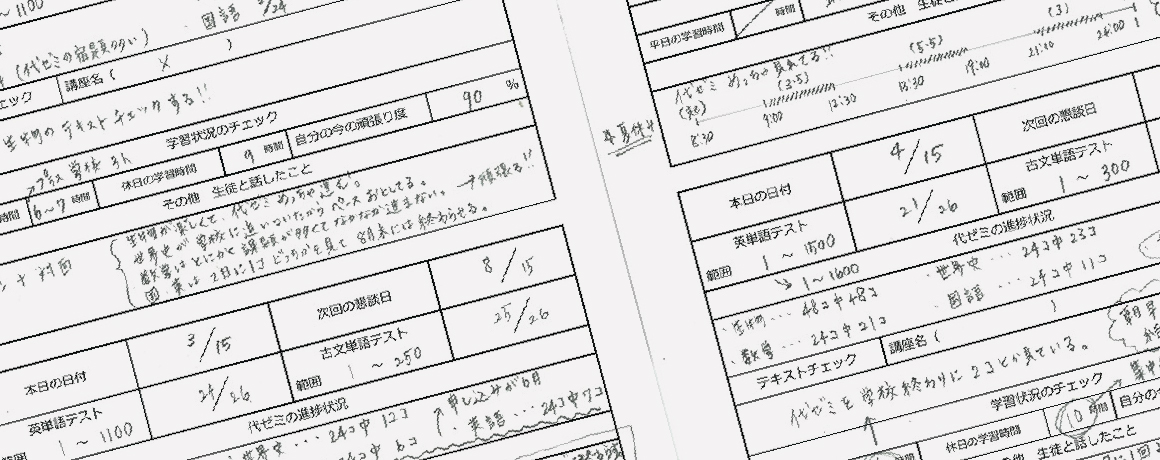 ~1100
国語 5/24
(代ゼミの宿題多い)
ェック 講座名( × )
生物のテキストチェックする!!
学習状況のチェック
→プラス学校3h
時間 6~7時間 休日の学習時間 9時間 自分の今の頑張り度 90 %
その他 生徒と話したこと
生物が楽しくて、代ゼミめっちゃ進む!
世界史が学校に追いついたからペースおとしてる。
数学はとにかく課題が多くてなかなか進まない。→頑張る!!
国 対面
8月末には終わらせる。
本日の日付 3/15 次回の懇談日 8/15
英単語テスト 24/26 古文単語テスト 25/26
1~1100 範囲 1~250
代ゼミの進捗状況
世界史…24コ中12コ ↑申し込みが6月
24コ中6コ ・英語…24コ中7コ
平日の学習時間 時間
その他 生徒と
代ゼミめっちゃ見てる!!
(3.5) (5.5) (3)
8:30 9:00 12:30 13:30 19:00 21:00 24:00
夏休み
本日の日付 4/15 次回の懇談日
英単語テスト 21/26 古文単語テスト
範囲 1~1500 範囲 1~300
↘1~1600
代ゼミの進捗状況
・生物…48コ中48コ ・世界史…24コ中23コ
・数学…24コ中21コ ・国語…24コ中11コ
テキストチェック 講座名( )
代ゼミを学校終わりに2コとか見ている。
学習状況のチェック
休日の学習時間 10時間 自分の今
その他 生徒と話したこと